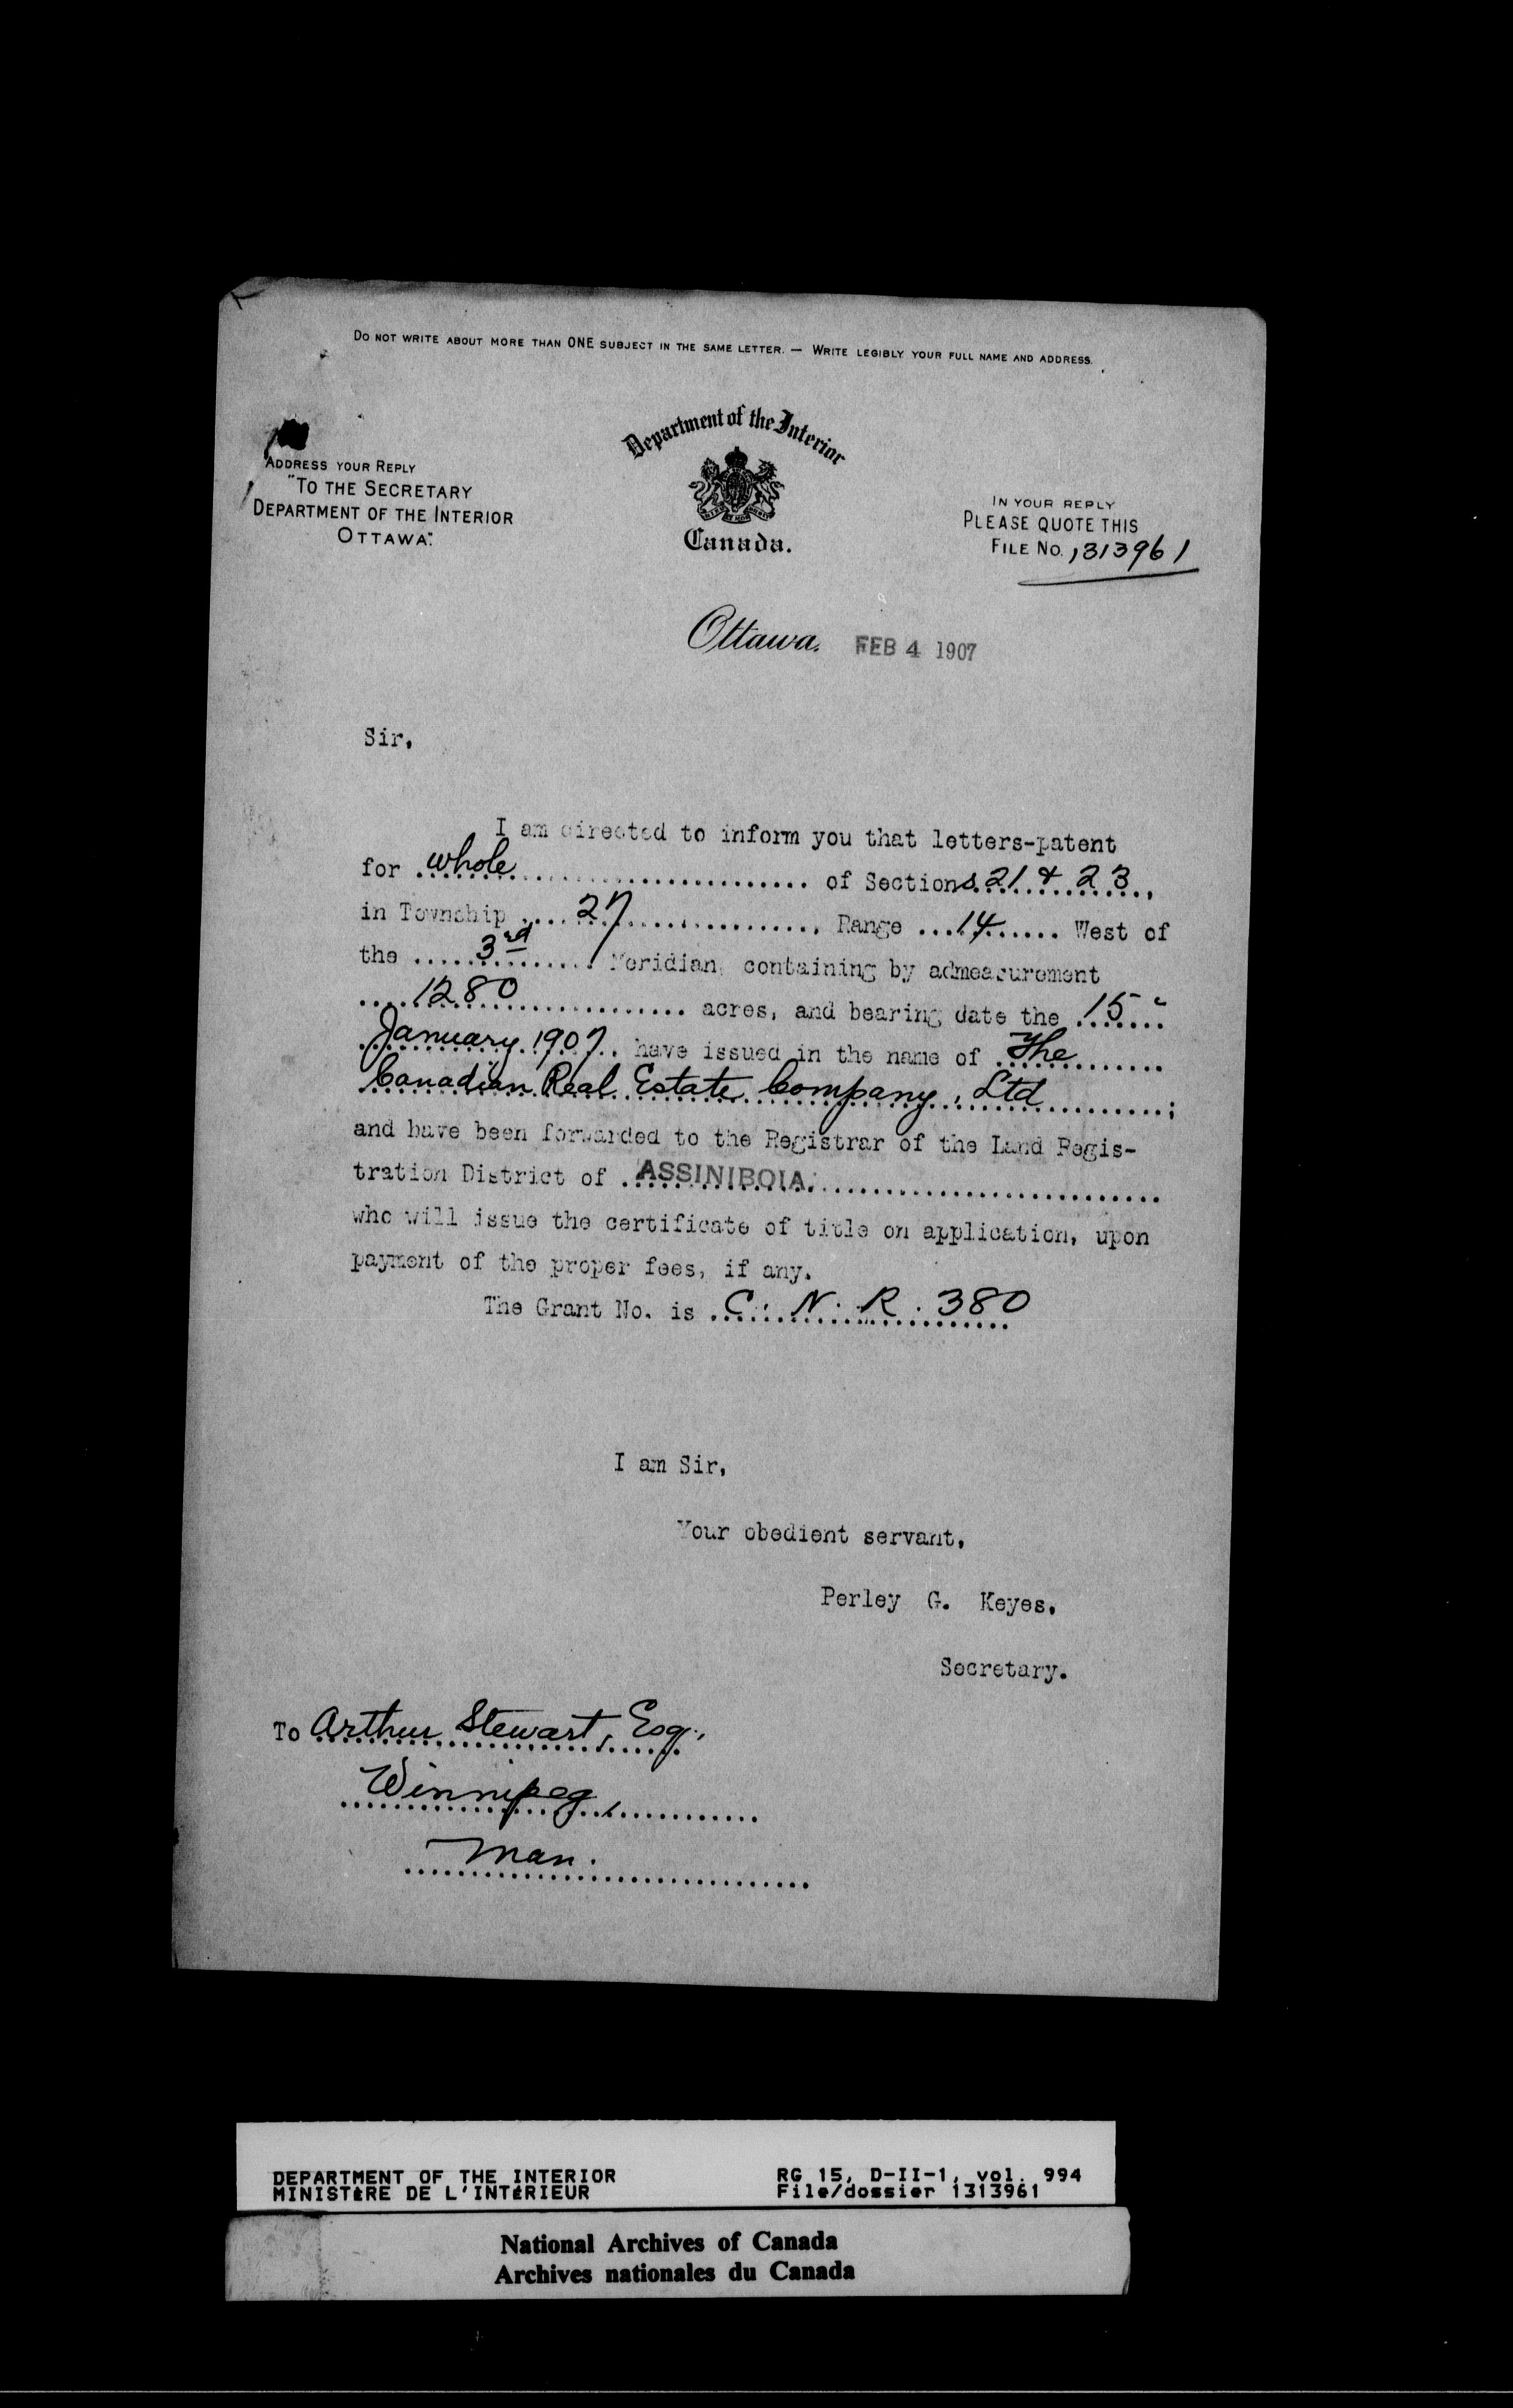 DO NOT WRITE ABOUT MORE THAN ONE SUBJECT IN THE SAME LETTER. — WRITE LEGIBLY YOUR FULL NAME AND ADDRESS.
Department of the Interior
Canada.
ADDRESS YOUR REPLY
"TO THE SECRETARY
DEPARTMENT OF THE INTERIOR
OTTAWA."
IN YOUR REPLY
PLEASE QUOTE THIS
FILE NO. 1313961
Ottawa. FEB 4 1907
Sir,
I am directed to inform you that letters-patent
for whole of Sections 21 & 23,
in Township 27, Range 14 West of
the 3rd Meridian, containing by admeasurement
1280 acres, and bearing date the 15"
January 1907. have issued in the name of The
Canadian Real Estate Company, Ltd;
and have been forwarded to the Registrar of the Land Regis-
tration District of ASSINIBOIA.
who will issue the certificate of title on application, upon
payment of the proper fees, if any.
The Grant No. is C. N. R. 380
I am Sir,
Your obedient servant,
Perley G. Keyes,
Secretary.
To Arthur Stewart, Esq.,
Winnipeg,
Man.
DEPARTMENT OF THE INTERIOR
MINISTÈRE DE L'INTÉRIEUR
RG 15, D-II-1, vol. 994
File/dossier 1313961
National Archives of Canada
Archives nationales du Canada